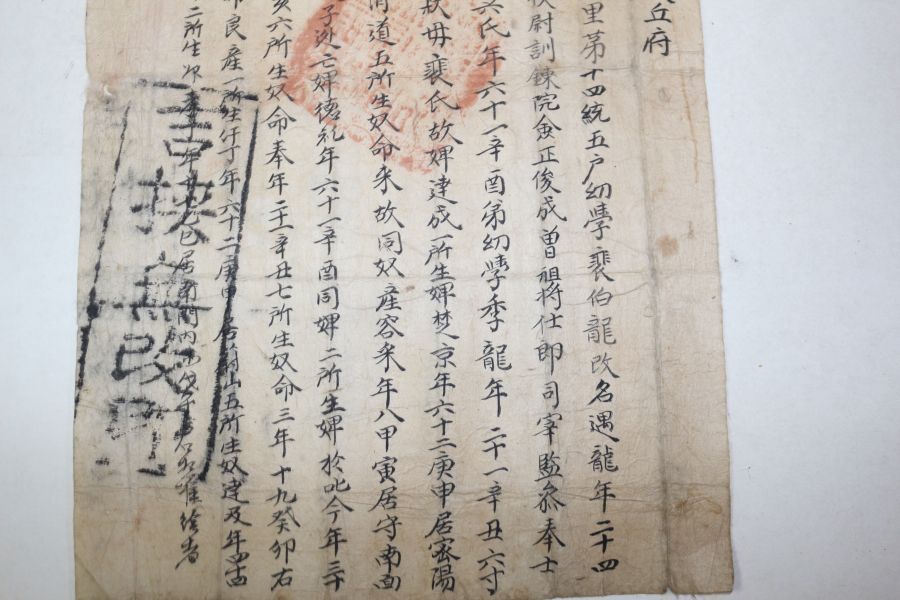 丘府
里第十四統五户幼學裵伯龍改名遇龍年二十四
校尉訓鍊院僉正俊成曽祖將仕郎司宰監參奉士
氏年六十一辛酉弟幼學季龍年二十一辛丑六寸
扶毋裵氏故婢建成一所生婢楚京年六十二庚申居密陽
道五所生奴命來故同奴產容來年八甲寅居守南面
子逃亡婢德礼年六十一辛酉同婢二所生婢於叱今年三十
六所生奴命奉年二十一辛丑七所生奴命三年十九癸卯右
良産一所生仔丁年六十二庚申居蔚山五所生奴建及年四十
二所生 年 己巳居南門内 準給者
書挾無改印